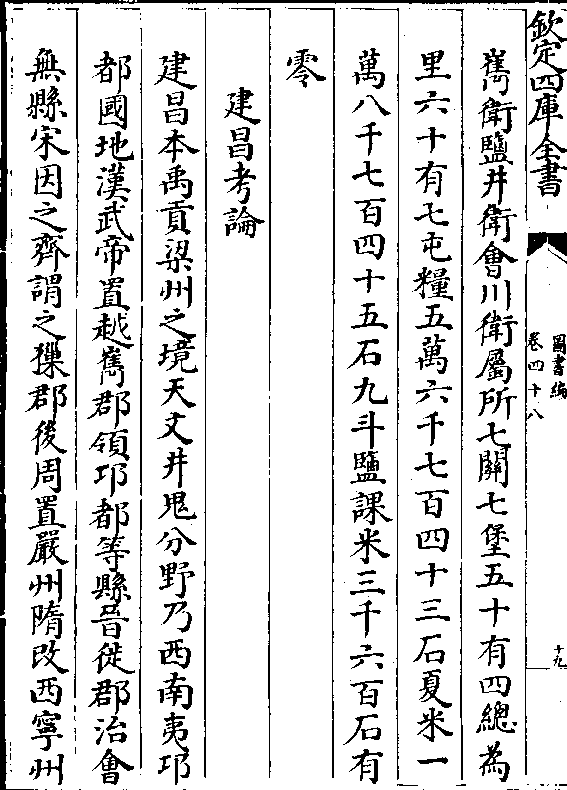 欽定四庫全書
圖書編
卷四十八
十九
嶲衛鹽井衛會川衛屬所七關七堡五十有四總為
里六十有七屯糧五萬六千七百四十三石夏米一
萬八千七百四十五石九斗鹽課米三千六百石有
零
建昌考論
建昌本禹貢梁州之境天文井鬼分野乃西南夷邛
都國地漢武帝置越嶲郡領邛都等縣晉徙郡治會
無縣宋因之齊謂之獠郡後周置嚴州隋改西寧州